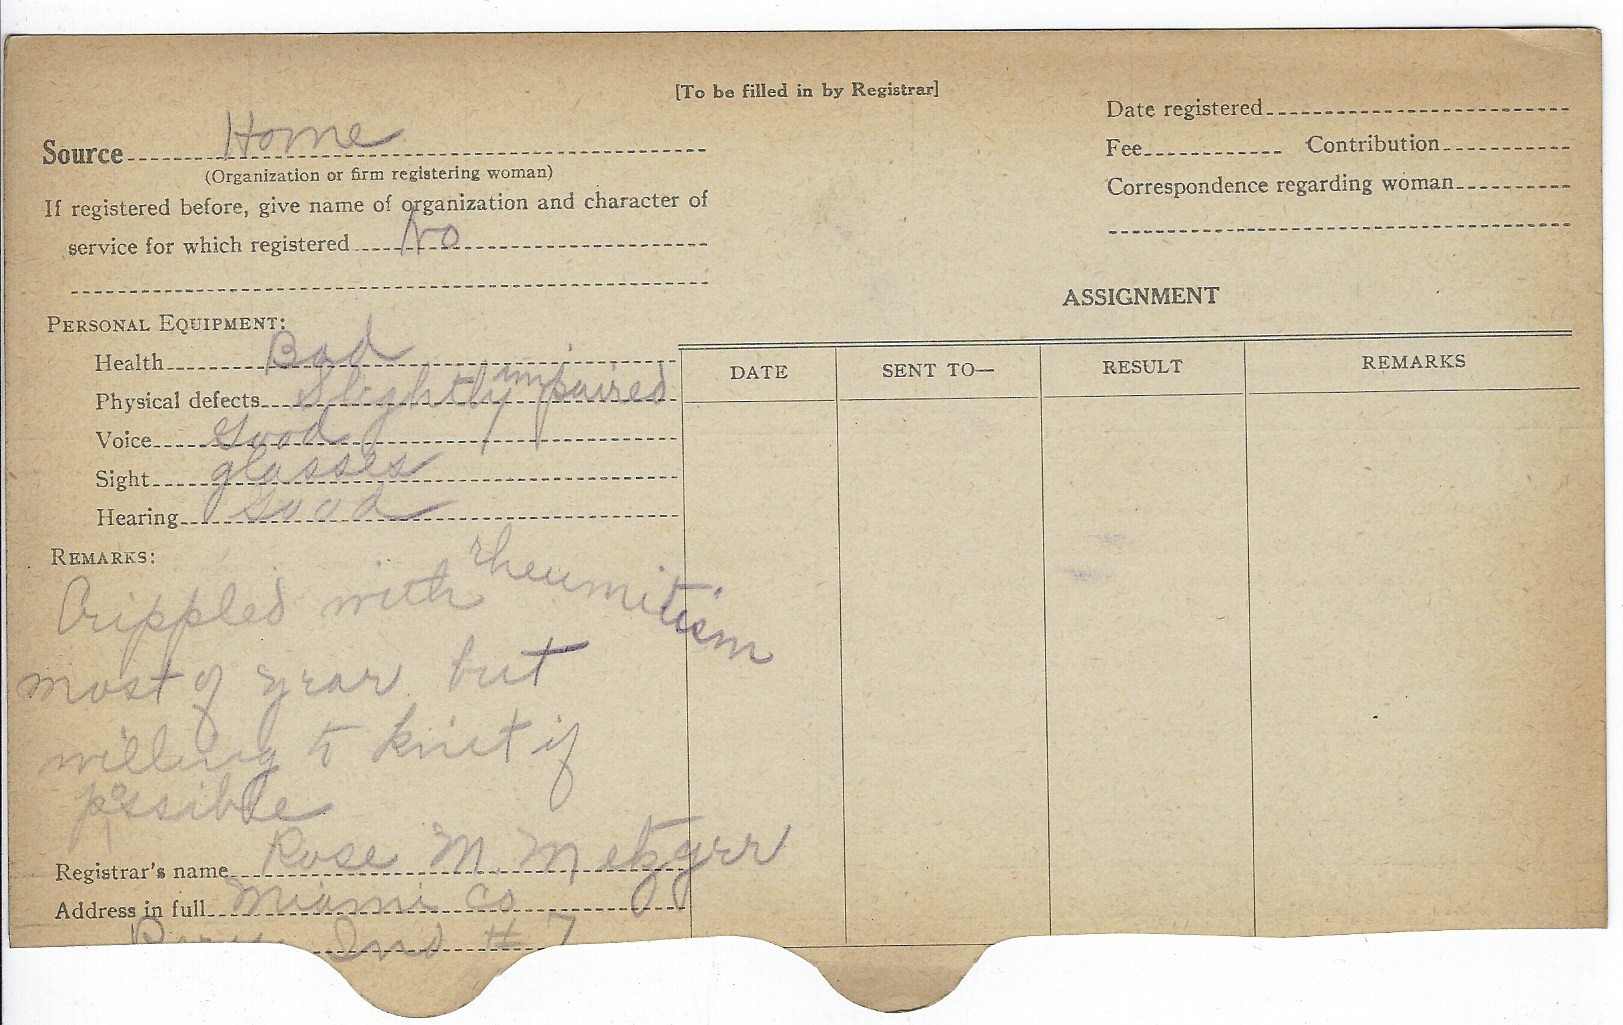 [To be filled in by Registrar]
Source Home
(Organization or firm registering woman)
If registered before, give name of organization and character of
service for which registered No
Date registered
Fee Contribution
Correspondence regarding woman
PERSONAL EQUIPMENT:
Health Bad
Physical defects Slightly impaired
Voice Good
Sight glasses
Hearing Good
REMARKS:
Crippled with rheumitism
most of year but
willing to knit if
possible
Registrar's name Rose M. Metzger
Address in full Miami Co
Ind # 7
ASSIGNMENT
DATE SENT TO— RESULT REMARKS